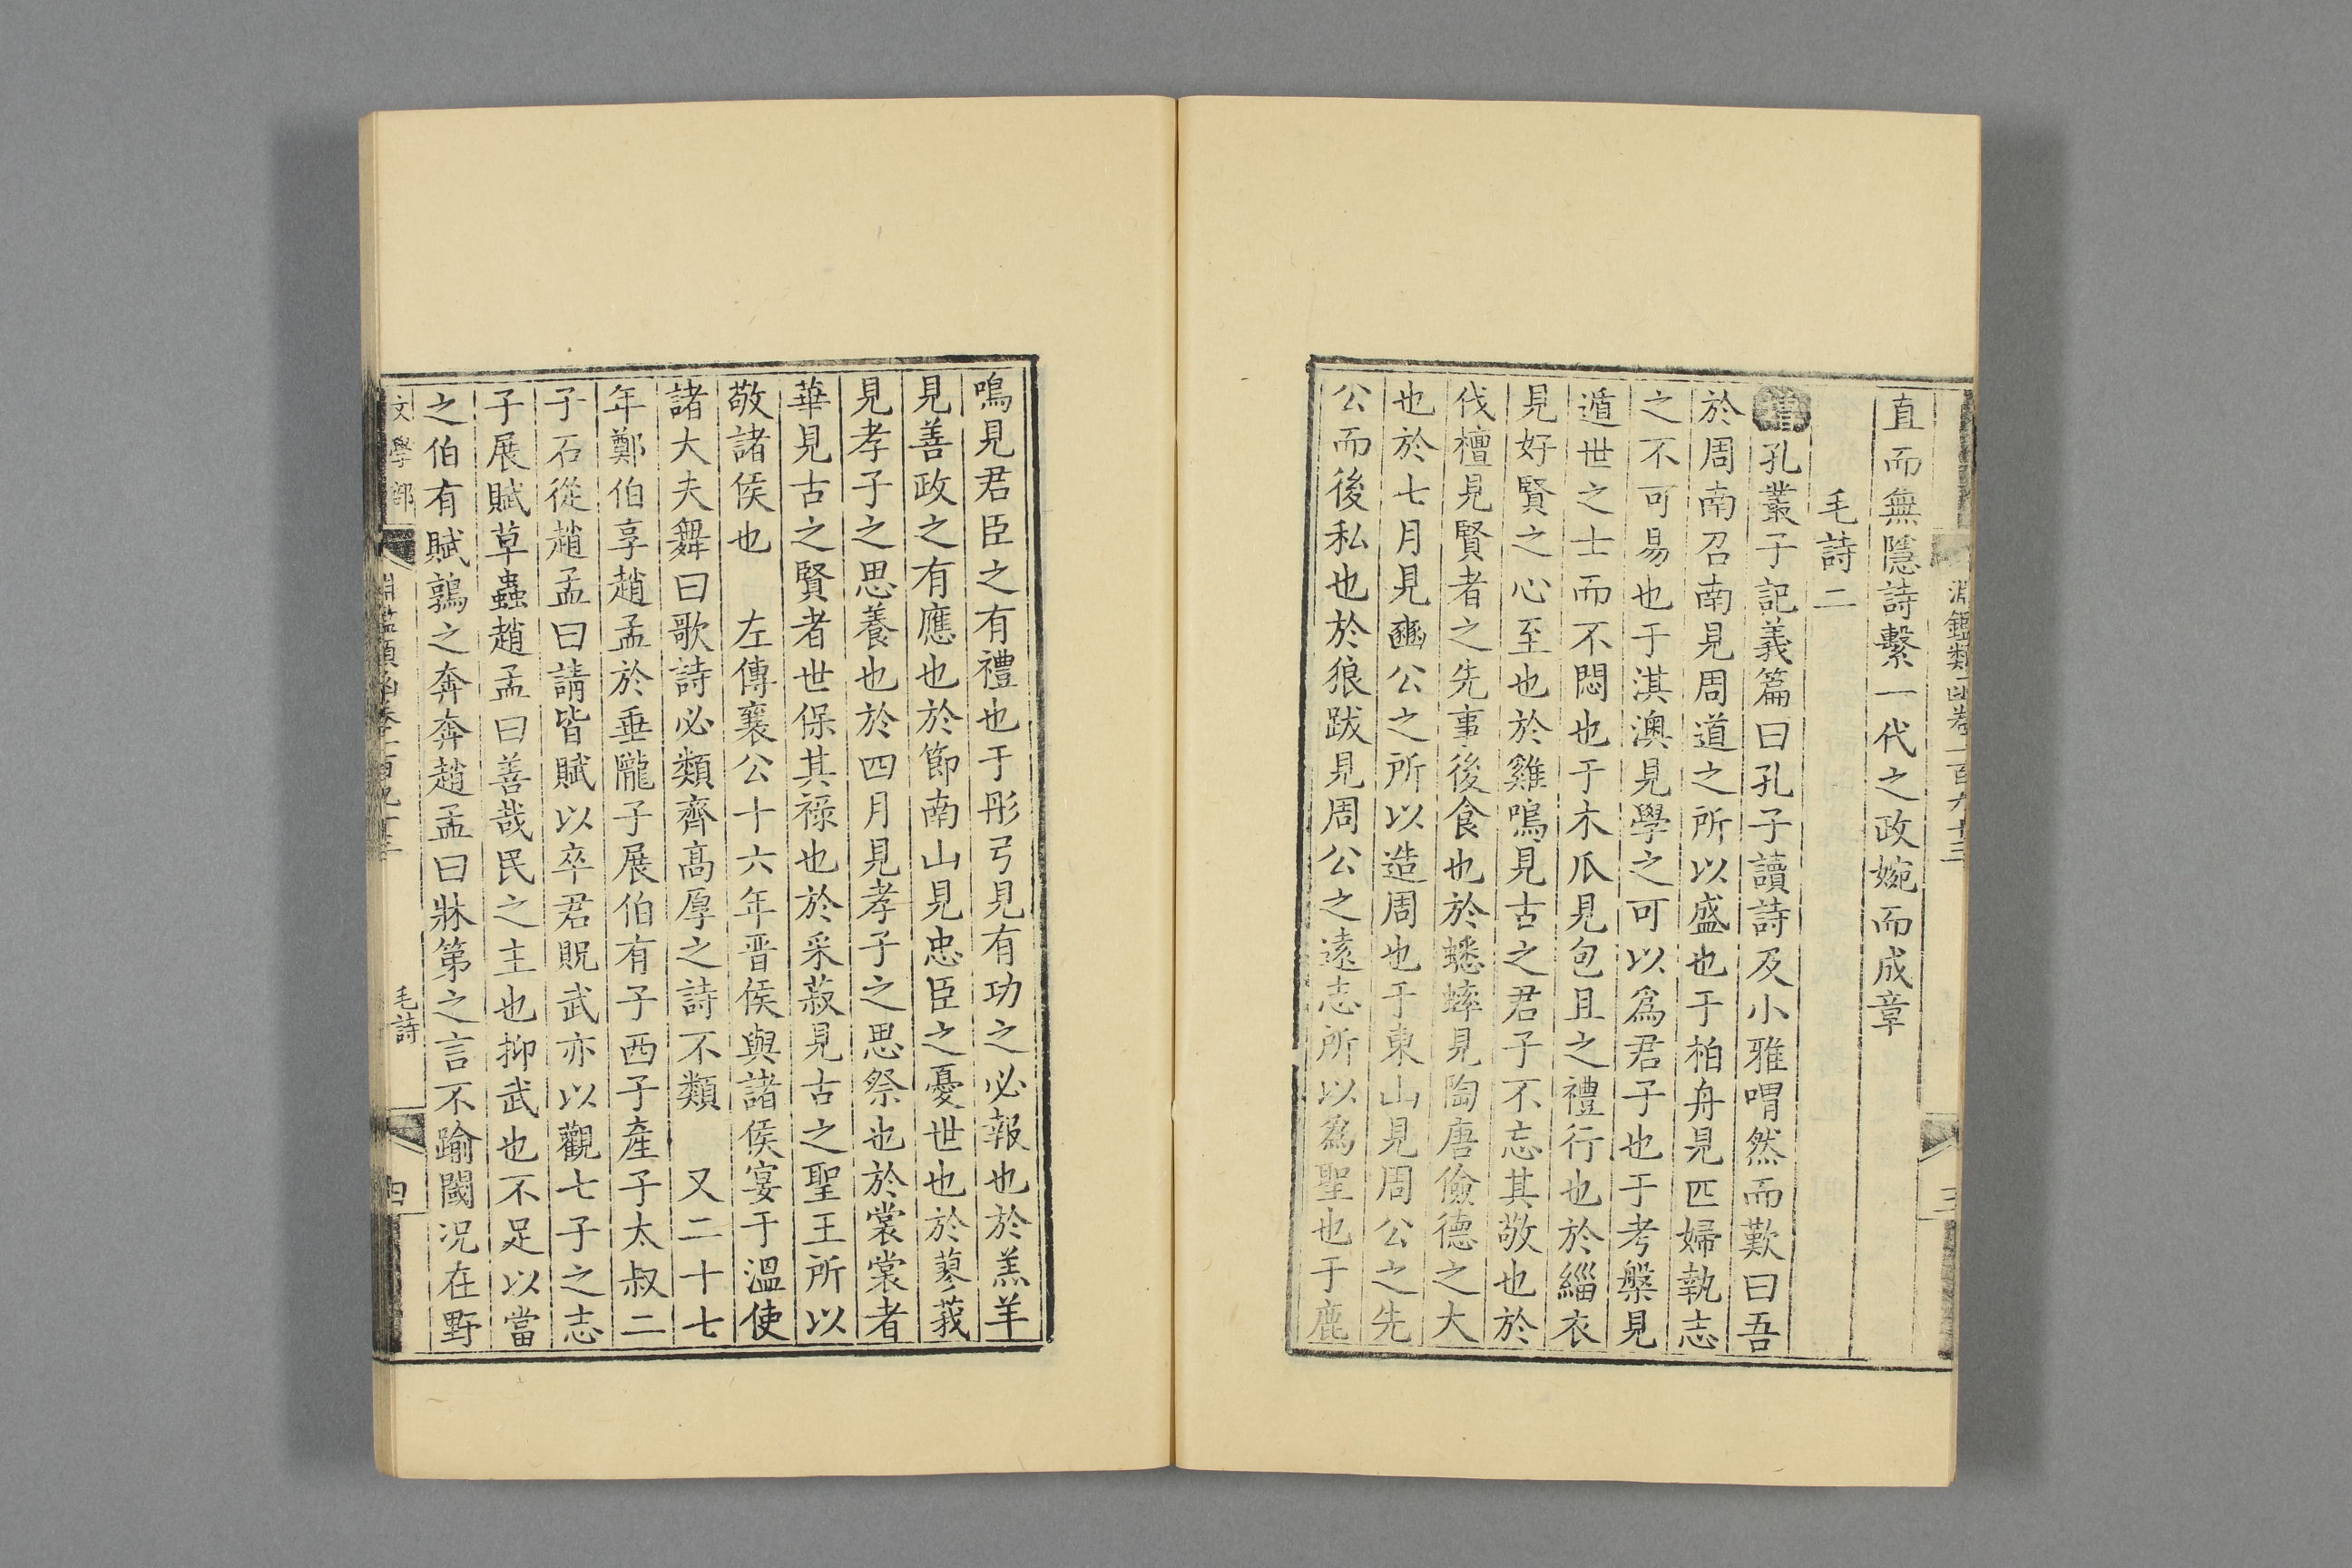 淵鑑類函卷一百九十三
三
直而無隱詩繫一代之政婉而成章
毛詩二
孔叢子記義篇曰孔子讀詩及小雅喟然而歎曰吾
於周南召南見周道之所以盛也于柏舟見匹婦執志
之不可易也于淇澳見學之可以爲君子也于考槃見
遁世之士而不悶也于木瓜見包且之禮行也於緇衣
見好賢之心至也於雞鳴見古之君子不忘其敬也於
伐檀見賢者之先事後食也於蟋蟀見陶唐儉德之大
也於七月見豳公之所以造周也于東山見周公之先
公而後私也於狼跋見周公之遠志所以爲聖也于鹿
鳴見君臣之有禮也于彤弓見有功之必報也於羔羊
見善政之有應也於節南山見忠臣之憂世也於蓼莪
見孝子之思養也於四月見孝子之思祭也於裳裳者
華見古之賢者世保其祿也於采菽見古之聖王所以
敬諸侯也 左傳襄公十六年晋侯與諸侯宴于溫使
諸大夫舞曰歌詩必類齊高厚之詩不類 又二十七
年鄭伯享趙孟於垂隴子展伯有子西子產子太叔二
子石從趙孟曰請皆賦以卒君貺武亦以觀七子之志
子展賦草蟲趙孟曰善哉民之主也抑武也不足以當
之伯有賦鶉之奔奔趙孟曰牀第之言不踰閾況在野
文學部
淵鑑類函卷一百九十三
毛詩
四